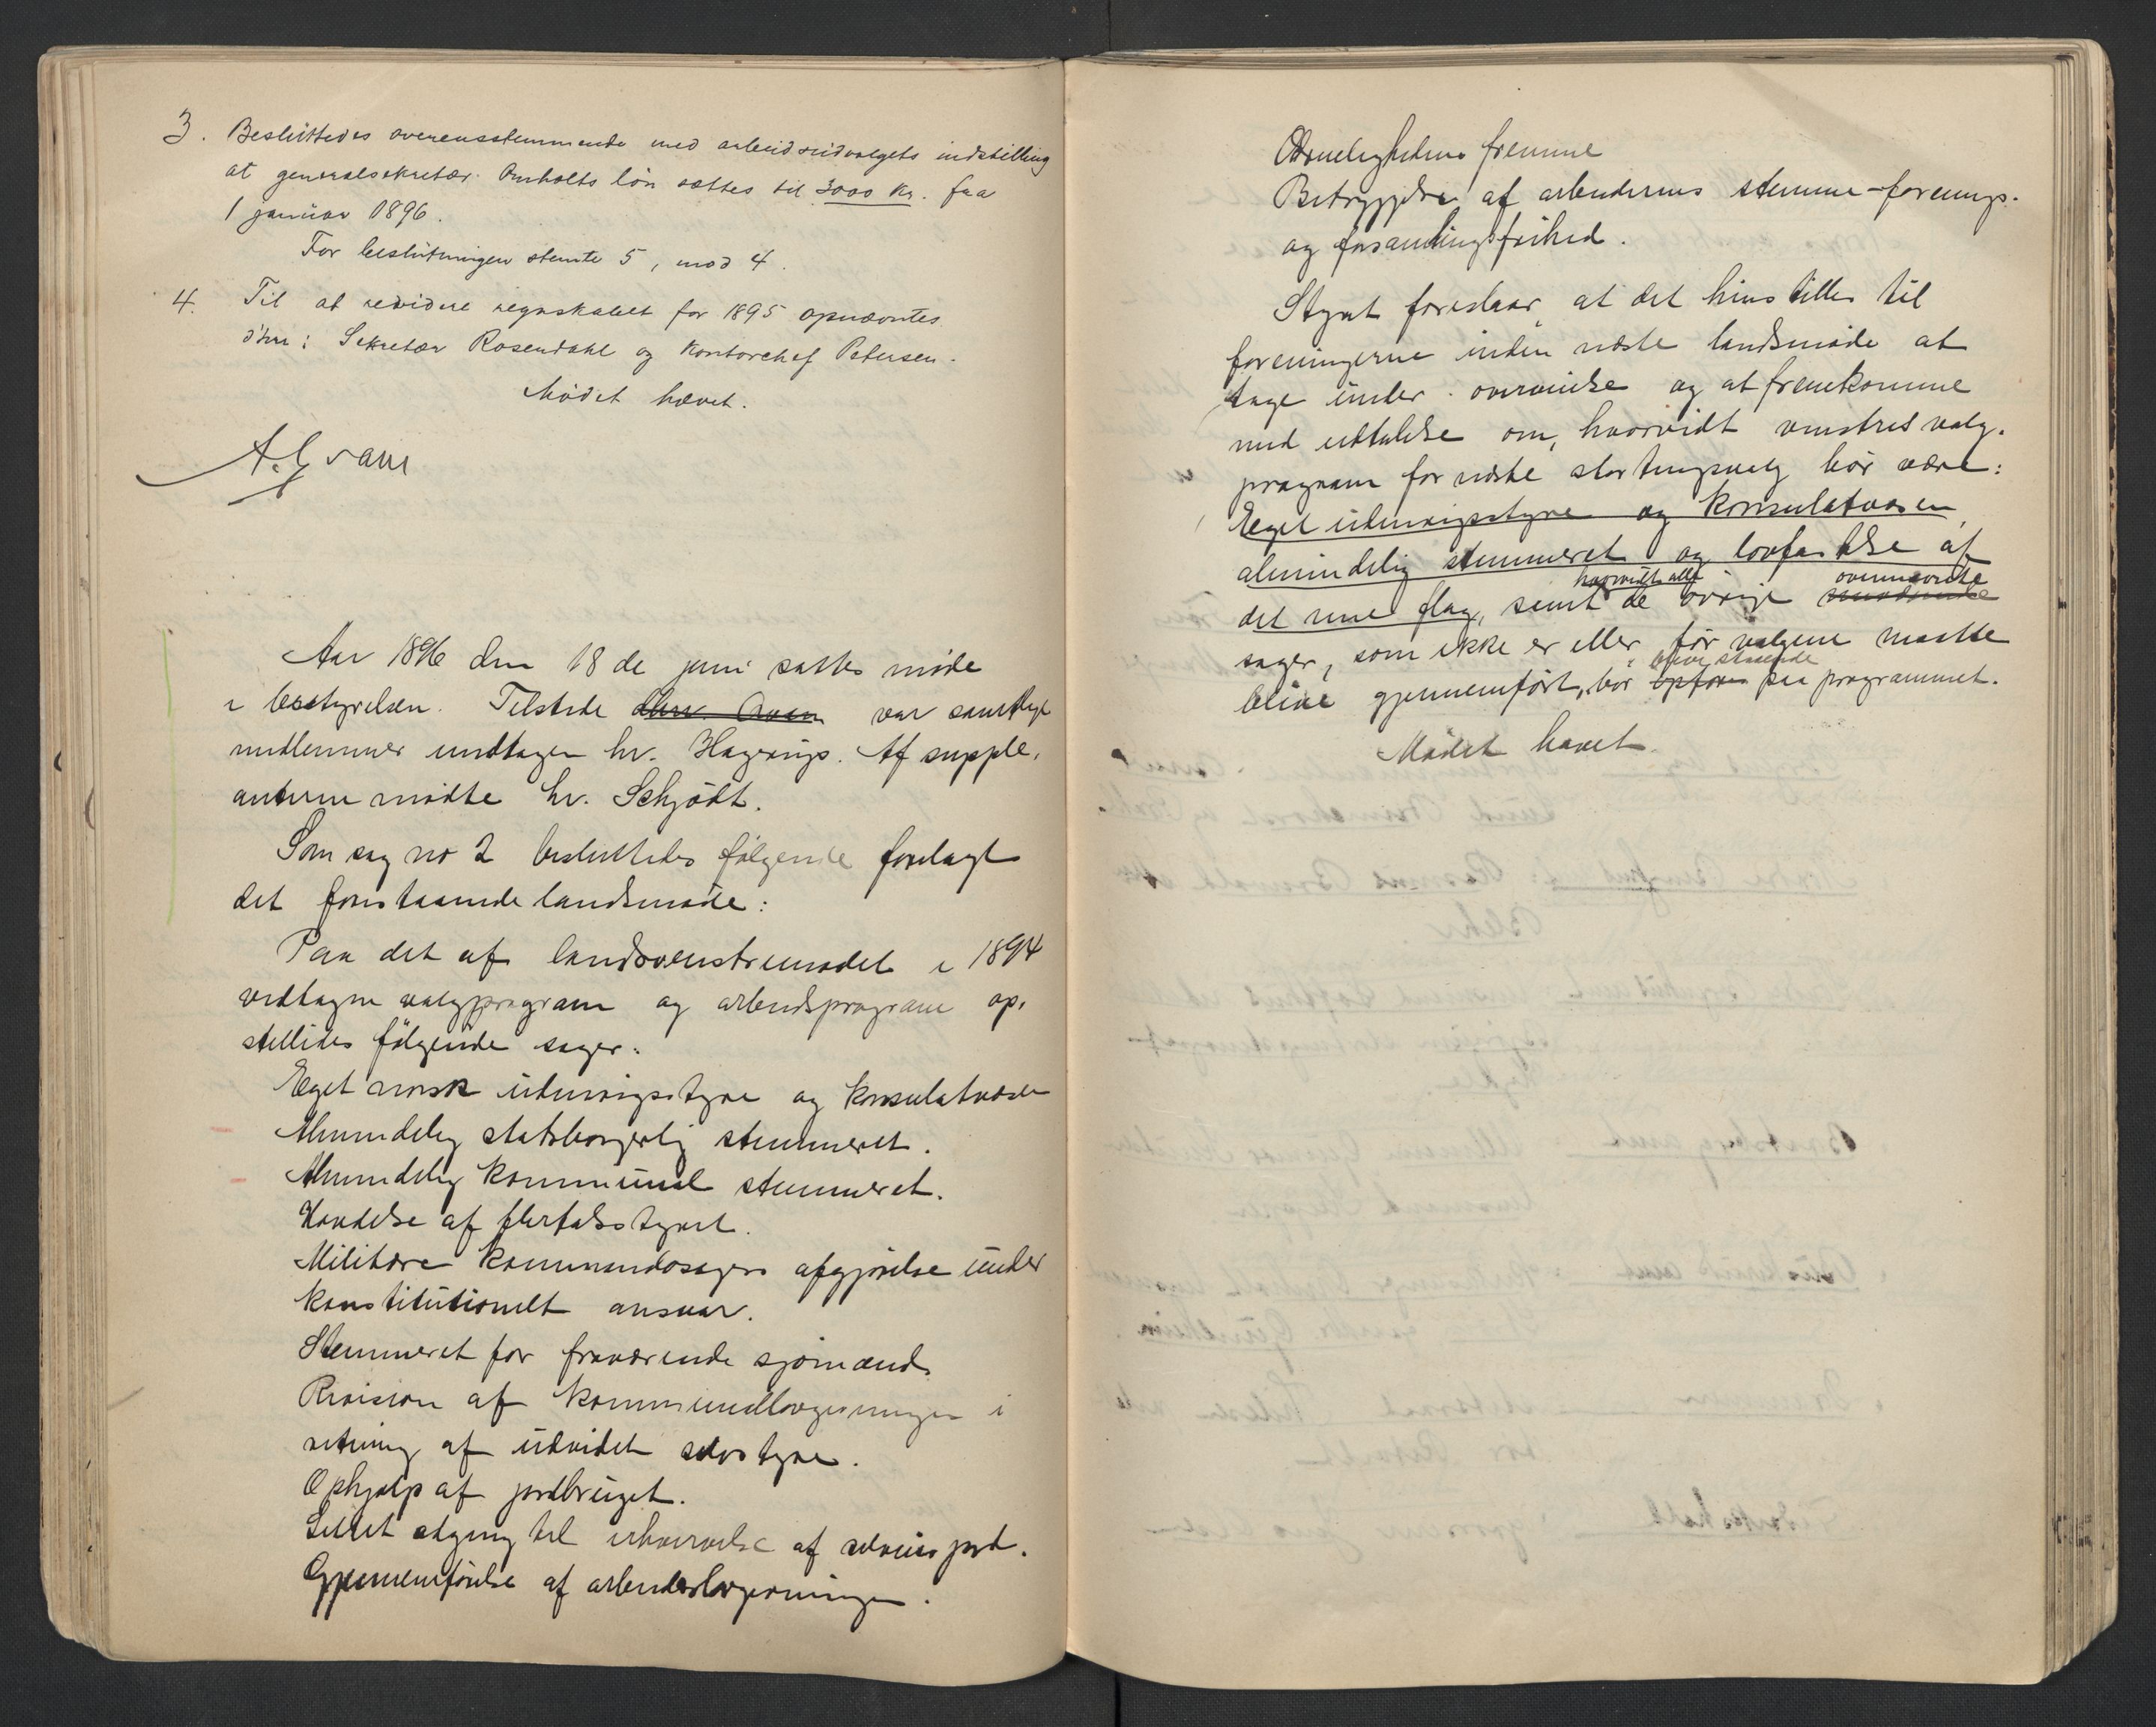 3. Besluttedes overensstemmende med arbeidsudvalgets indstilling
at generalsekretær Omholts løn sættes til 3000 kr. fra
1 januar 1896.
For beslutningen stemte 5, mod 4.
4. Til at revidere regnskabet for 1895 opnævntes
d'hrr: Sekretær Rosendahl og Kontorchef Petersen.
Mødet hævet.
Aar 1896 den 18 de juni sattes møde
i bestyrelsen. Tilstede var samtlige
medlemmer undtagen hr. Hagerup. Af supple-
anterne mødte hr. Schjødt.
Som sag no 2 besluttedes følgende forelagt
det forestaaende landsmøde:
Paa det af landsvenstremødet i 1894
vedtagne valgprogram og arbeidsprogram op-
stilledes følgende sager:
Eget norsk udenrigsstyre og konsulatvæsen
Almindelig statsborgerlig stemmeret.
Almindelig kommunal stemmeret.
Hævdelse af flertalsstyret.
Militære kommandosagers afgjørelse under
konstitutionelt ansvar.
Stemmeret for fraværende sjømænd.
Revision af kommunallovgivningen i
retning af udvidet selvstyre.
Ophjælp af jordbruget.
Lettet adgang til erhvervelse af selveierjord.
Gjennemførelse af arbeiderlovgivningen.
Ædrueligheden fremme
Betryggelse af arbeidernes stemme-forenings-
og forsamlingsfrihed.
Styret foreslaar, at det henstilles til
foreningerne inden næste landsmøde at
tage under overveielse og at fremkomme
med udtalelse om, hvorvidt venstres valg-
program for næste stortingsvalg bør være:
Eget udenrigsstyre og konsulatvæsen,
almindelig stemmeret og lovfæstelse af
det rene flag, samt hvorvidt alle de øvrige ovennævnte
sager, som ikke er eller før valgene maatte
blive gjennemført, bør opføres blive staaende paa programmet.
Mødet hævet.